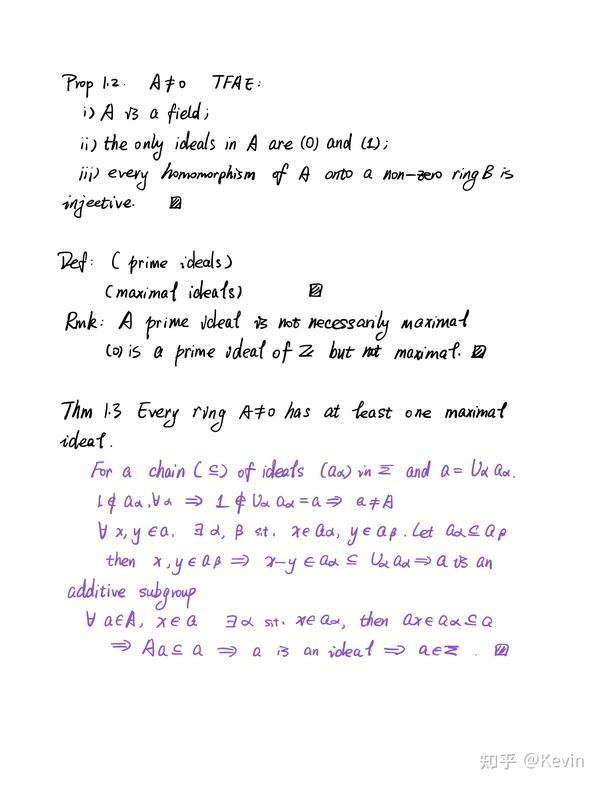 Prop 1.2. A≠0 TFAE:
i) A is a field;
ii) the only ideals in A are (0) and (1);
iii) every homomorphism of A onto a non-zero ring B is
injective. ▨
Def: (prime ideals)
(maximal ideals) ▨
Rmk: A prime ideal is not necessarily maximal
(0) is a prime ideal of Z but not maximal. ▨
Thm 1.3 Every ring A≠0 has at least one maximal
ideal.
For a chain (⊆) of ideals (aα) in Σ and a = ∪α aα.
1∉aα, ∀α ⇒ 1∉∪α aα = a ⇒ a≠A
∀ x, y ∈ a, ∃ α, β s.t. x∈aα, y∈aβ. Let aα ⊆ aβ
then x, y ∈ aβ ⇒ x-y ∈ aα ⊆ ∪α aα ⇒ a is an
additive subgroup
∀ a∈A, x∈a ∃ α s.t. x∈aα, then ax∈aα⊆a
⇒ Aa⊆a ⇒ a is an ideal ⇒ a∈Σ. ▨
知乎 @Kevin